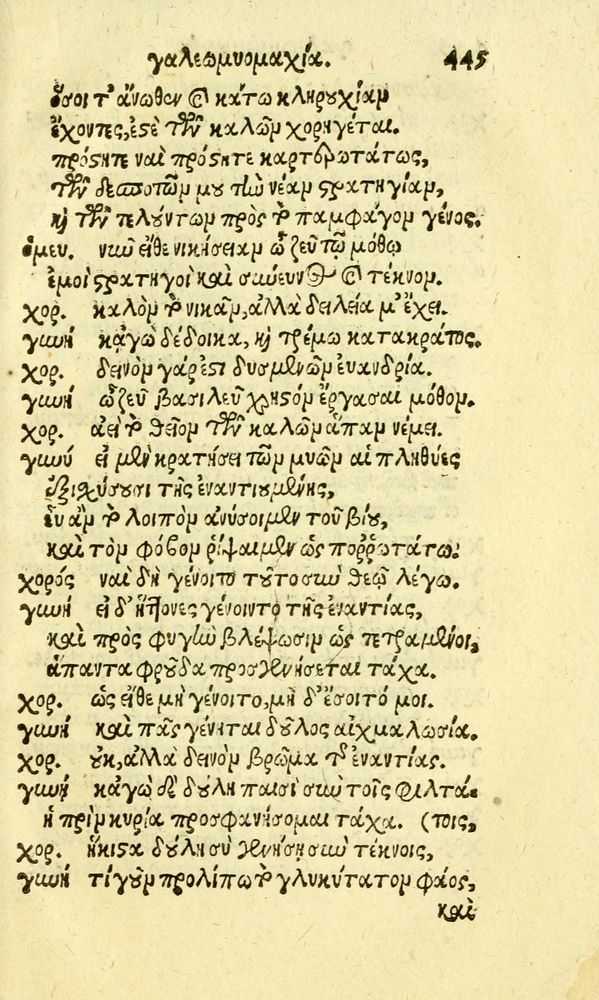 γαλεωμυομαχία. 445
ὅσοι τ' ἄνωθεν καὶ κάτω κληρουχίαν
ἔχοντες, ἐστὲ τῶν καλῶν χορηγέται.
πρόσητε ναὶ πρόσητε καρτερωτάτως,
τῶν δεσποτῶν μου τὼ νέαν στρατηγίαν,
καὶ τῶν τελούντων πρὸς τὸ παμφάγον γένος.
ὁμευ. νῦν εἴθε νικήσειαν ὦ ζεῦ τῷ μόθῳ
ἐμοὶ στρατηγοὶ καὶ σύνευνος καὶ τέκνον.
χορ. καλὸν τὸ νικᾶν, ἀλλὰ δειλεία μ' ἔχει.
γυνή κἀγὼ δέδοικα, καὶ τρέμω κατακράτος.
χορ. δεινὸν γάρ ἐστι δυσμενῶν ἐυανδρία.
γυνή ὦ ζεῦ βασιλεῦ χρηστὸν ἔργασαι μόθον.
χορ. ἀεὶ τὸ θεῖον τῶν καλῶν ἅπαν νέμει.
γυνή εἰ μὲν κρατήσει τῶν μυῶν αἱ πληθύες
ἐξισχύσουσι τῆς ἐναντιουμένης,
εὖ ἂν τὸ λοιπὸν ἀνύσοιμεν τοῦ βίου,
καὶ τὸν φόβον ῥίψαιμεν ὡς ποῤῥωτάτω.
χορός ναὶ δὴ γένοιτο τοῦτο σὺν θεῷ λέγω.
γυνή εἰ δ' ἥττονες γένοιντο τῆς ἐναντίας,
καὶ πρὸς φυγὼ βλέψωσιν ὡς πετραμένοι,
ἅπαντα φροῦδα προσγενήσεται τάχα.
χορ. ὡς εἴθε μὴ γένοιτο, μὴ δ' ἔσοιτό μοι.
γυνή καὶ πᾶς γένηται δοῦλος αἰχμαλωσία.
χορ. οὐκ, ἀλλὰ δεινὸν βρῶμα τῆς ἐναντίας.
γυνή κἀγὼ δὲ δούλη παισὶ σὺν τοῖς φιλτά-
ἡ πρὶν κυρία προσφανήσομαι τάχα. (τοις,
χορ. ἥκιστα δούλη σὺ γενήσῃ σὺν τέκνοις,
γυνή τί γοῦν προλίπω τὸ γλυκύτατον φάος,
καὶ